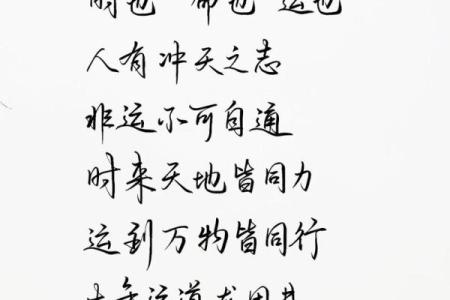 时也 命也 运也
人有冲天之志
非运不可自通
时来天地皆同力
运到万物皆同行